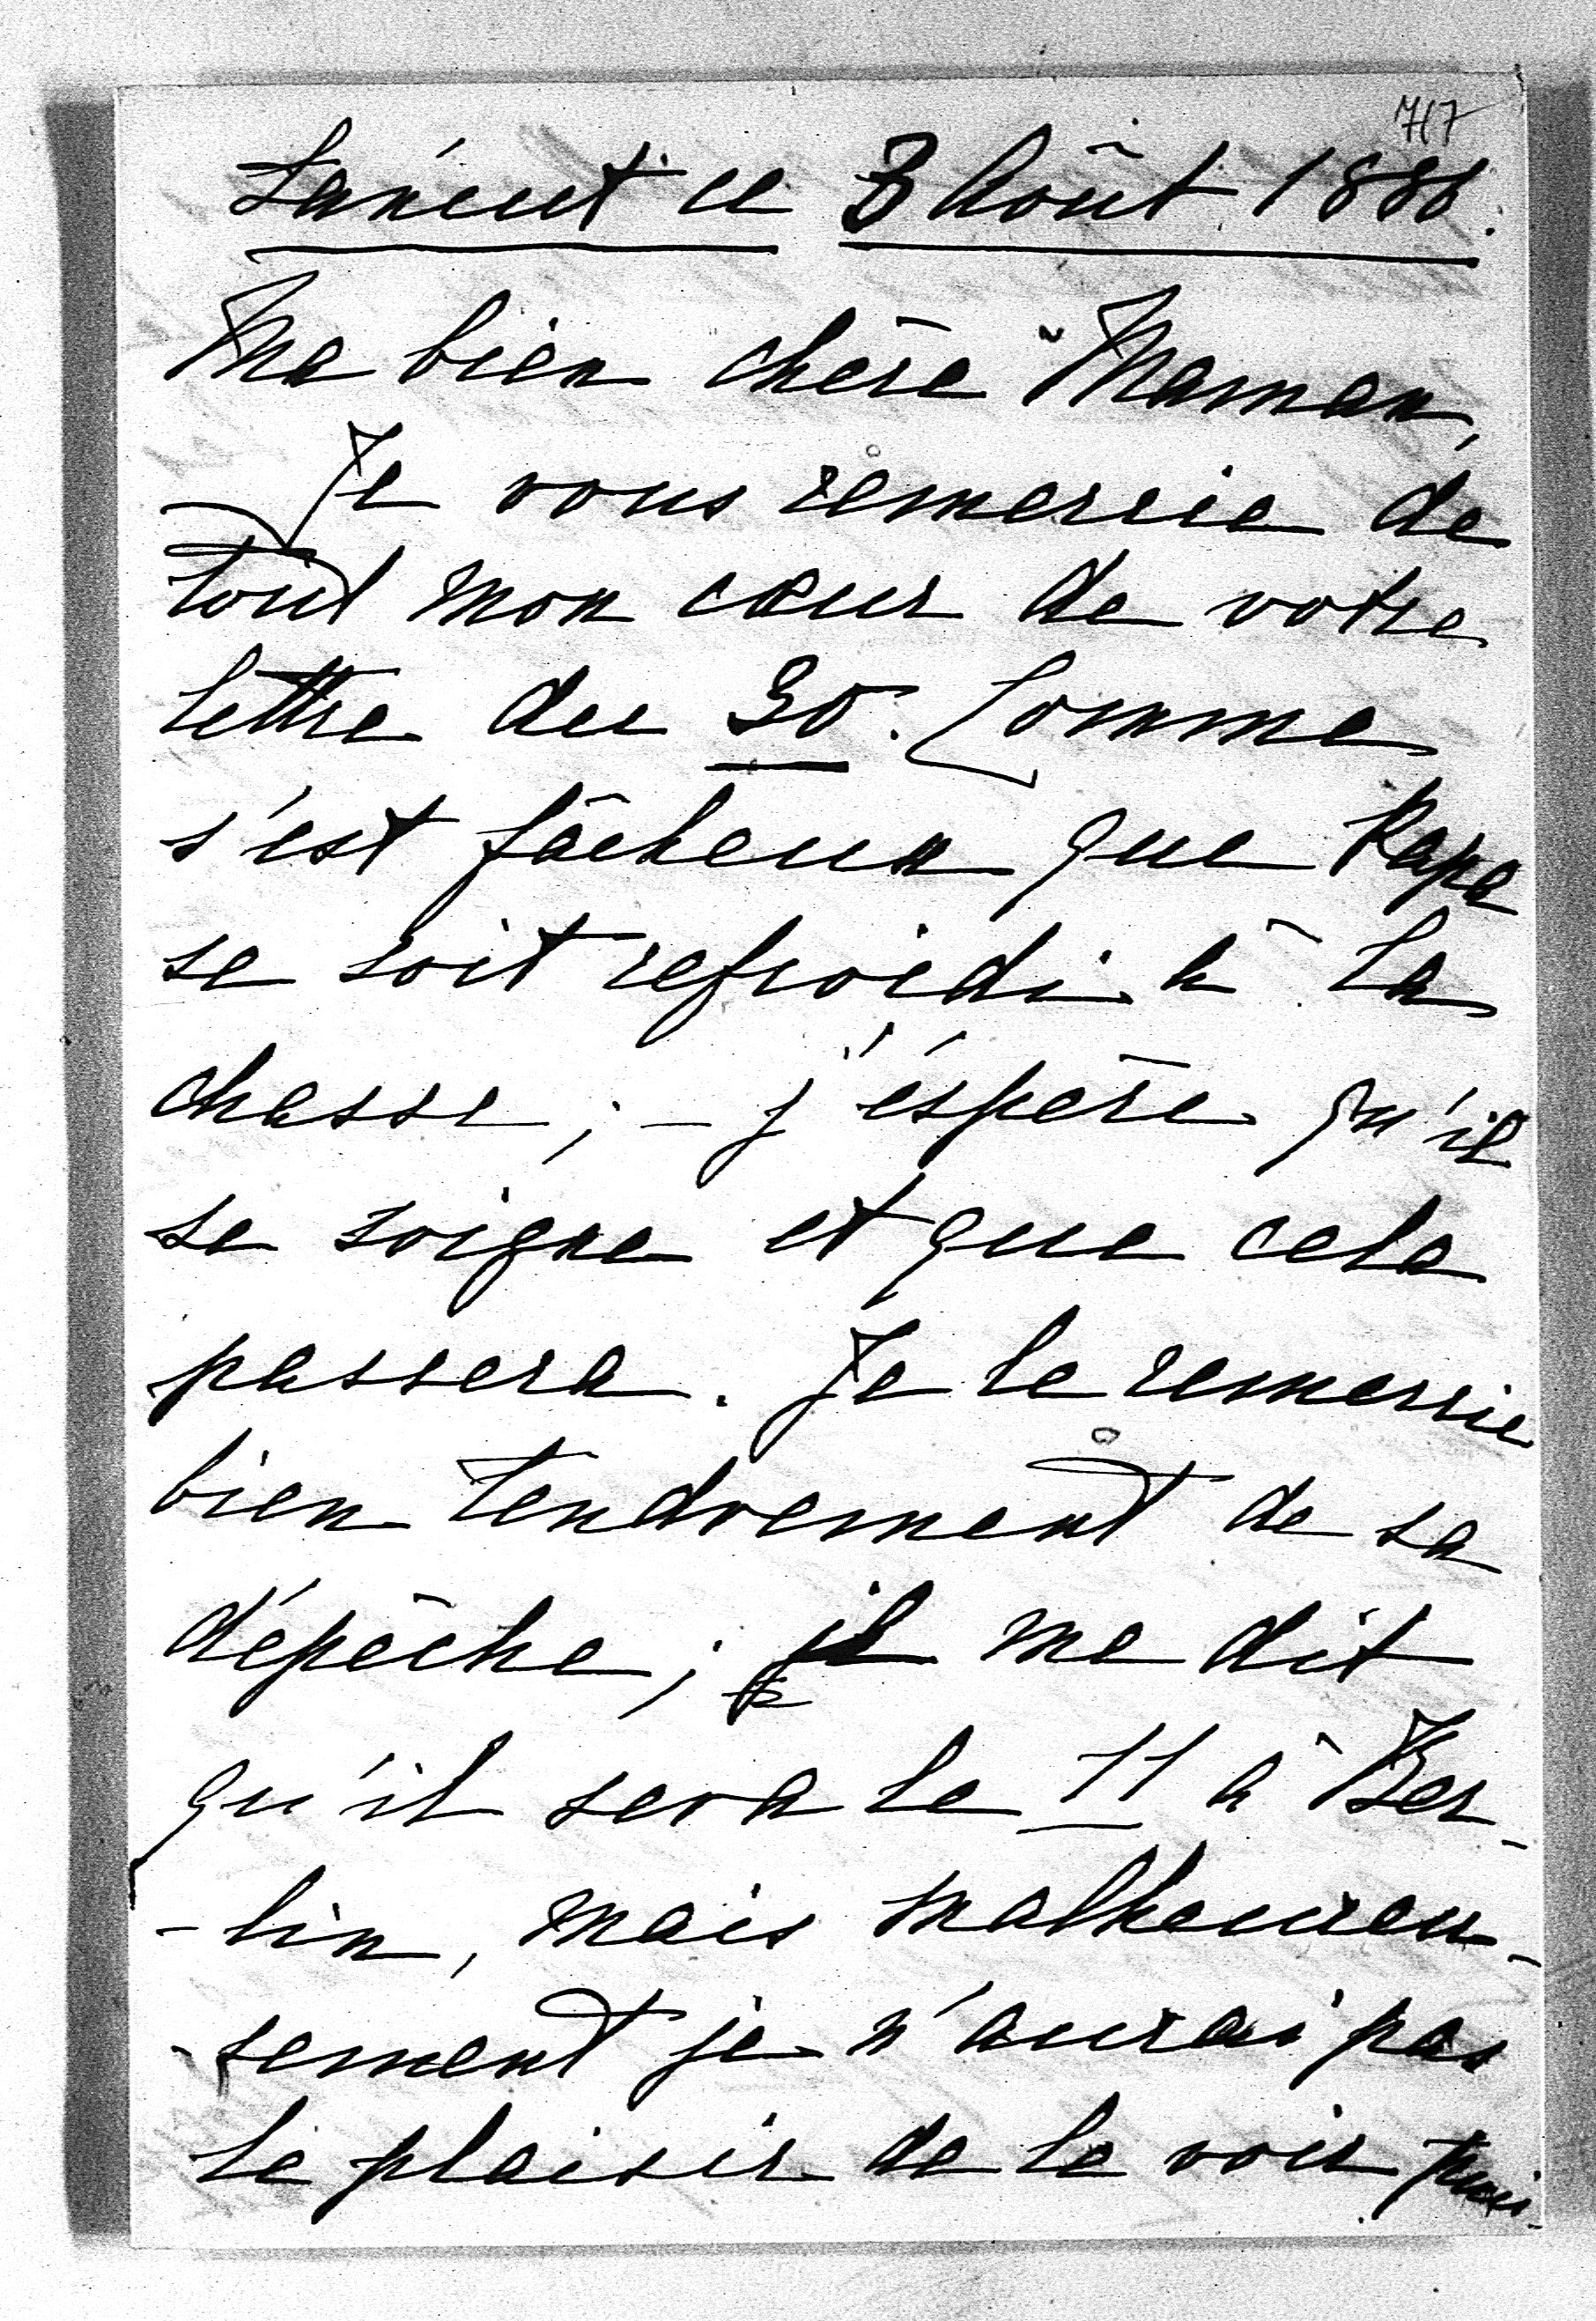 717
Lancut ce 3 Août 1886.
Ma bien chère Maman,
Je vous remercie de
tout mon cœur de votre
lettre du 30. Comme
s'est fâcheux que Papa
se soit refroidi à la
chasse; – j'éspère qu'il
se soigne et que cela
passera. Je le remercie
bien tendrement de sa
dépêche; il me dit
qu'il sera le 11 à Ber-
-lin, mais malheureu-
-sement je n'aurai pas
le plaisir de le voir puis-